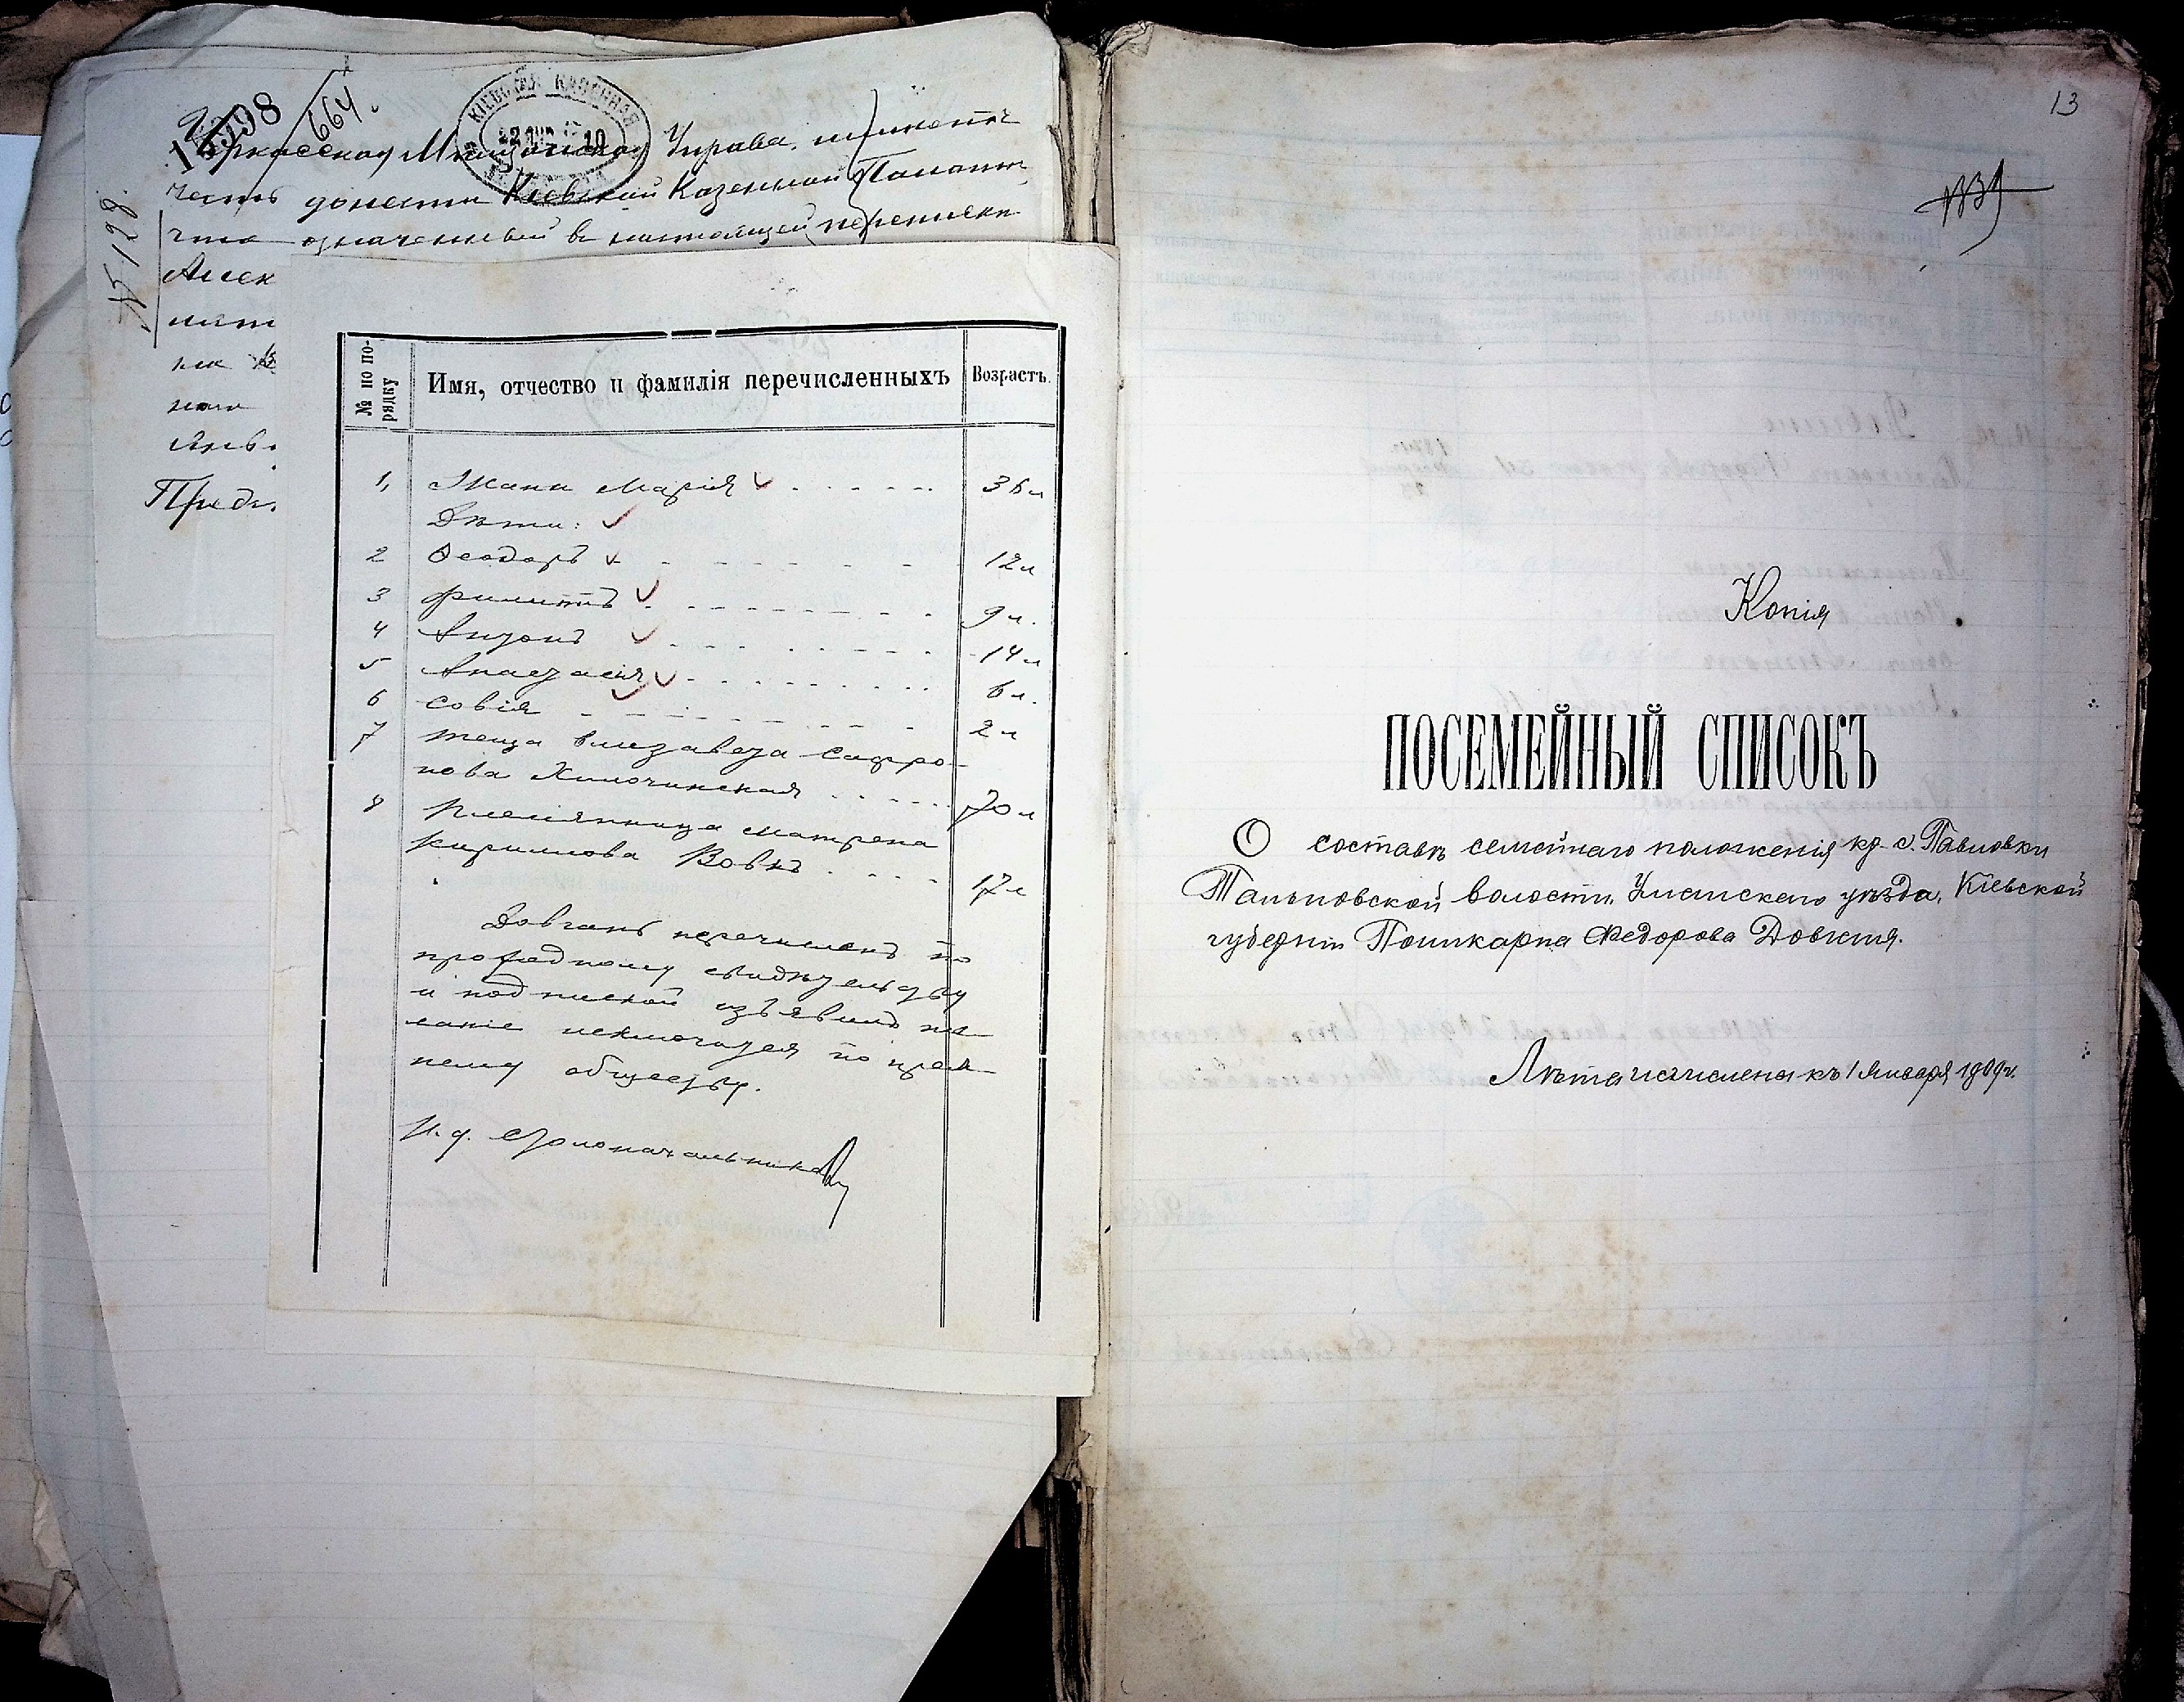 15798
664.
КІЕВСКАЯ КАЗЕННАЯ
№ 5128.
Черкасская Мѣщанская Управа, имѣетъ
честь донести Кіевской Казенной Палатѣ
что означенный въ настоящей перепискѣ
Алек
Предс
№ по по-
рядку
Имя, отчество и фамилія перечисленныхъ
Возрастъ.
1, Жена Марія 36 л
Дѣти:
2 Ѳеодоръ 12 л
3 Филиппъ 9 л.
4 Антонъ 14 л
5 Анастасія 6 л.
6 Софія 2 л
7 теща Елизавета Сафро-
нова Ключинская 70 л
8 Племянница Матрена
Кириллова Вовкъ 17 л
Довгань перечисленъ по
проѣздному свидѣтельству
и подпиской изъявилъ же-
ланіе исключатся по преж-
нему обществу.
И. д. Столоначальника
13
Копія
ПОСЕМЕЙНЫЙ СПИСОКЪ
О составѣ семейнаго положенія кр. с. Павловки
Тальновской волости, Уманскаго уѣзда, Кіевской
губерніи Поликарпа Федорова Довганя.
Лѣта исчислены къ 1 Января 1909 г.